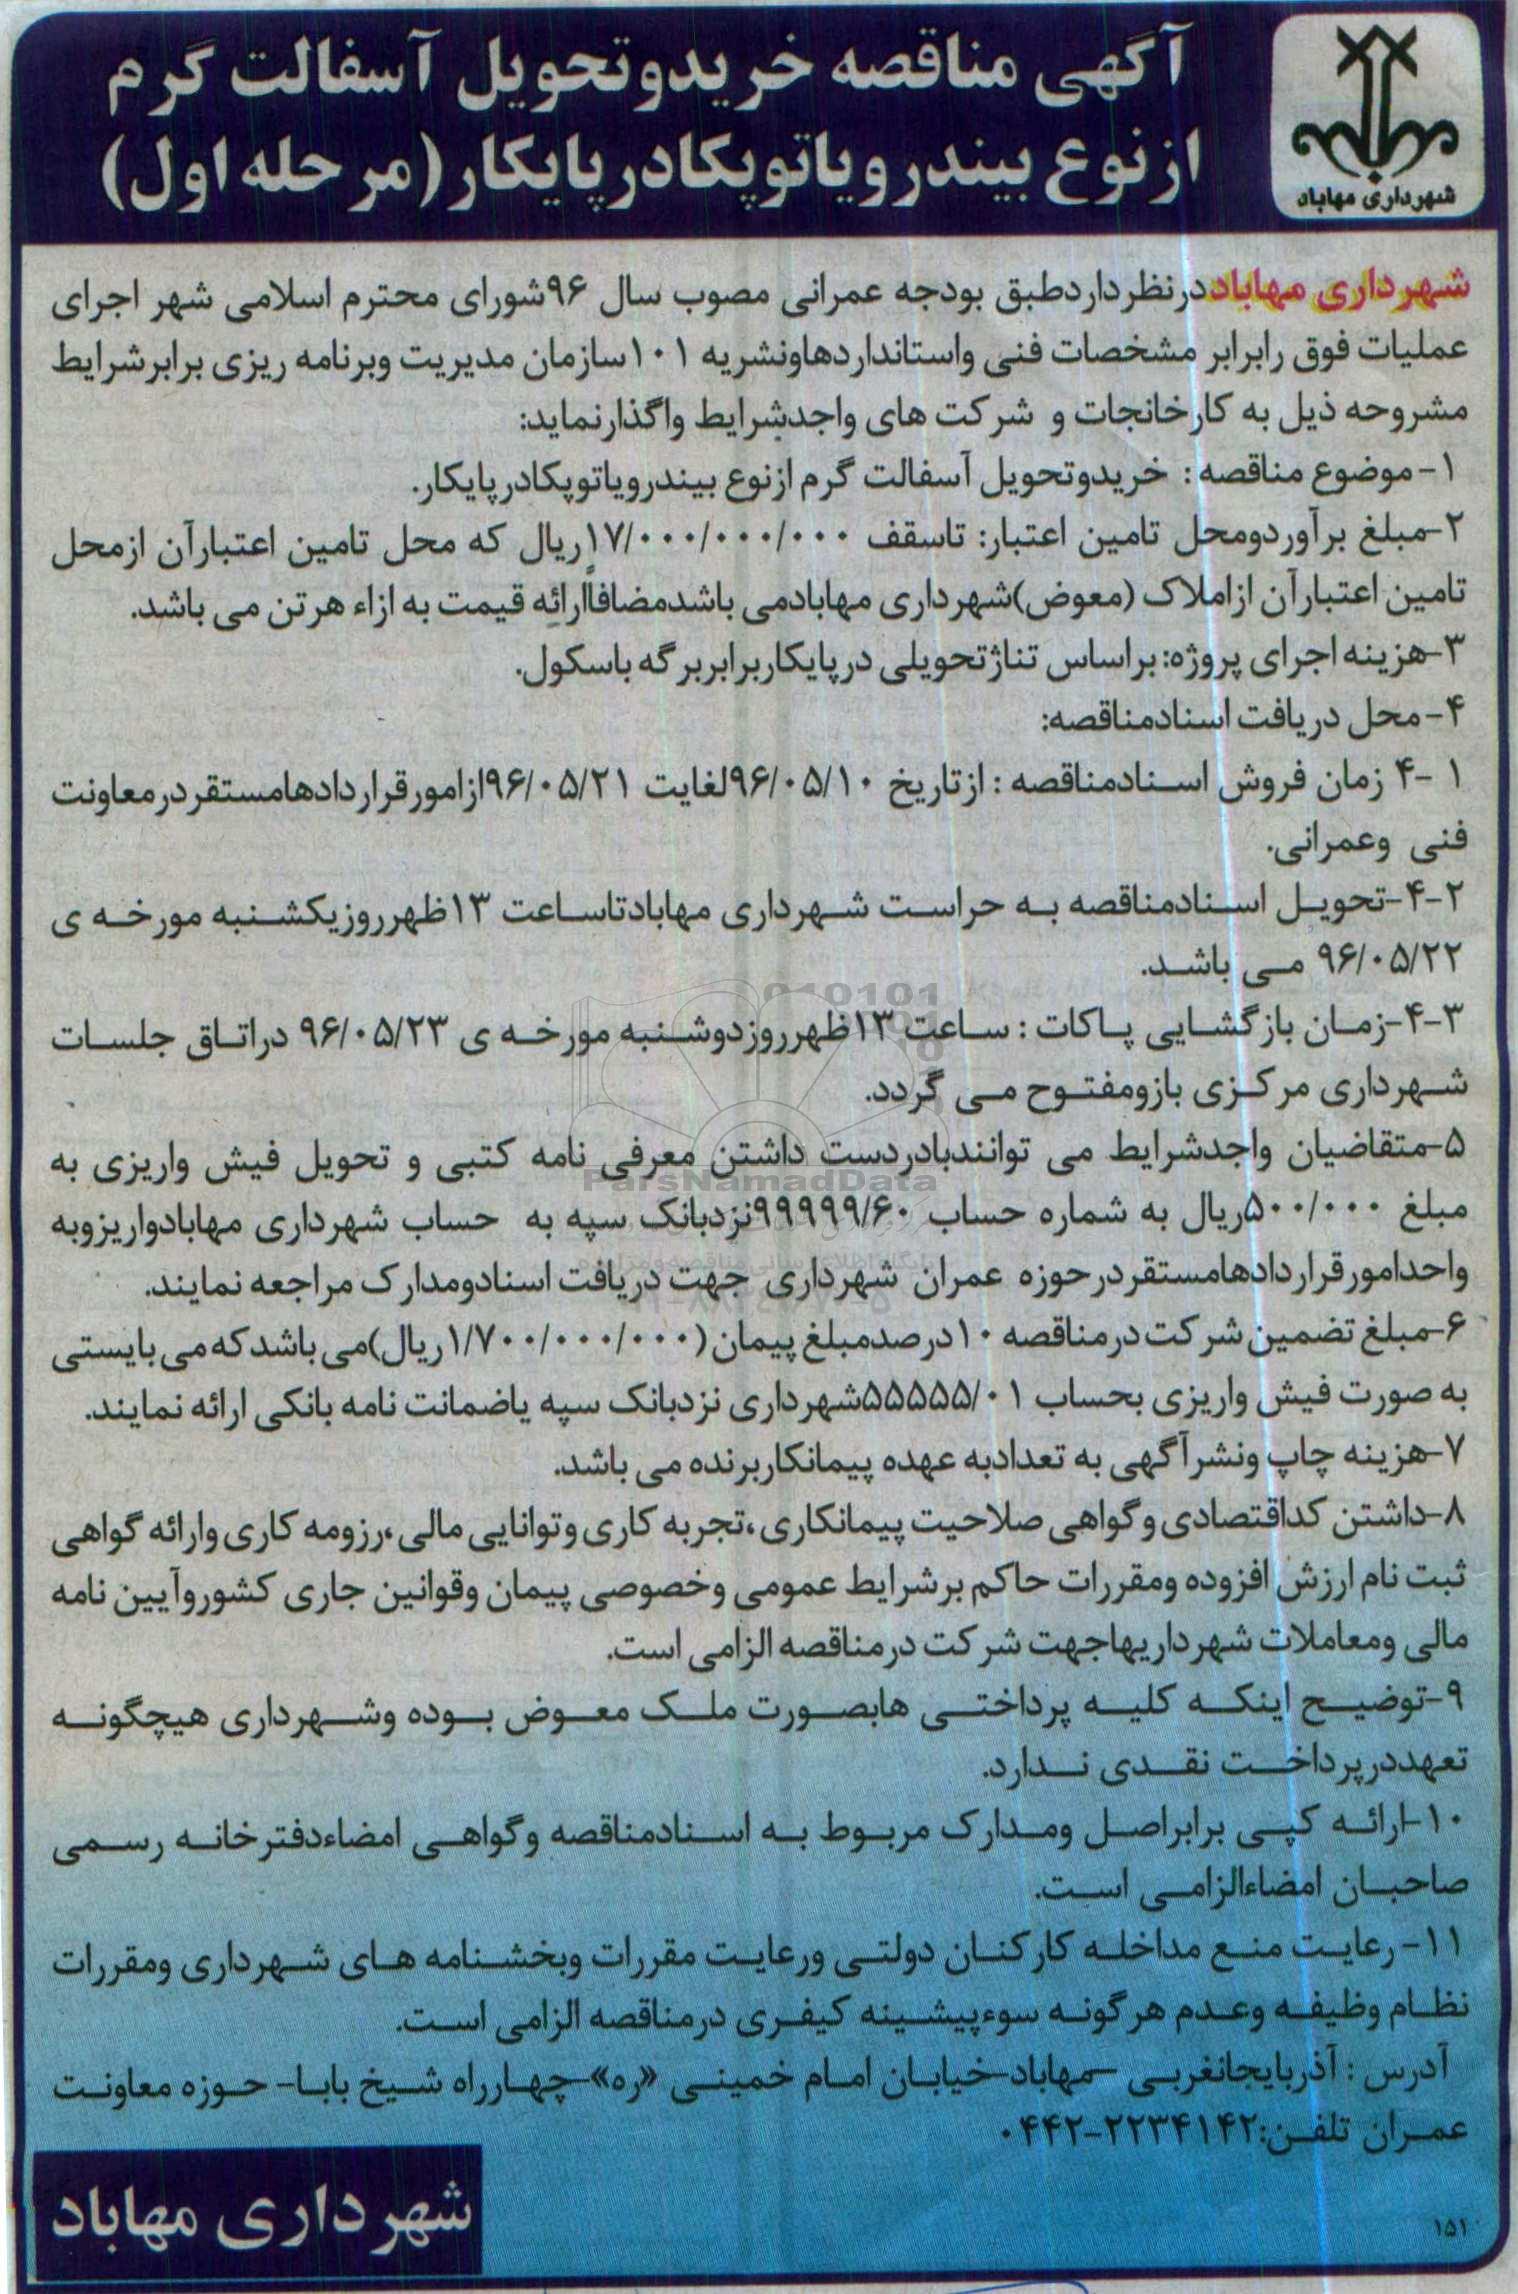 آگهی مناقصه خریدوتحویل آسفالت گرم
ازنوع بیندرویاتوپکادرپایکار(مرحله اول)
شهرداری مهاباد
شهرداری مهاباددرنظرداردطبق بودجه عمرانی مصوب سال ۹۶شورای محترم اسلامی شهر اجرای
عملیات فوق رابرابر مشخصات فنی واستانداردهاونشریه ۱۰۱سازمان مدیریت وبرنامه ریزی برابرشرایط
مشروحه ذیل به کارخانجات و شرکت های واجدشرایط واگذارنماید:
۱- موضوع مناقصه : خریدوتحویل آسفالت گرم ازنوع بیندرویاتوپکادرپایکار.
۲-مبلغ برآوردومحل تامین اعتبار: تاسقف ۱۷/۰۰۰/۰۰۰/۰۰۰ریال که محل تامین اعتبارآن ازمحل
تامین اعتبارآن ازاملاک (معوض)شهرداری مهابادمی باشدمضافاًارائه قیمت به ازاء هرتن می باشد.
۳-هزینه اجرای پروژه:براساس تناژتحویلی درپایکاربرابربرگه باسکول.
۴-محل دریافت اسنادمناقصه:
۱ -۴ زمان فروش اسنادمناقصه : ازتاریخ ۹۶/۰۵/۱۰لغایت ۹۶/۰۵/۲۱ازامورقراردادهامستقردرمعاونت
فنی وعمرانی.
۴-۲-تحویل اسنادمناقصه به حراست شهرداری مهابادتاساعت ۱۳ظهرروزیکشنبه مورخه ی
۹۶/۰۵/۲۲ می باشد.
۴-۳-زمان بازگشایی پاکات : ساعت ۱۳ظهرروزدوشنبه مورخه ی ۹۶/۰۵/۲۳ دراتاق جلسات
شهرداری مرکزی بازومفتوح می گردد.
۵-متقاضیان واجدشرایط می توانندبادردست داشتن معرفی نامه کتبی و تحویل فیش واریزی به
مبلغ ۵۰۰/۰۰۰ریال به شماره حساب ۹۹۹۹۹/۶۰نزدبانک سپه به حساب شهرداری مهابادواریزوبه
واحدامورقراردادهامستقردرحوزه عمران شهرداری جهت دریافت اسنادومدارک مراجعه نمایند.
۶-مبلغ تضمین شرکت درمناقصه ۱۰درصدمبلغ پیمان (۱/۷۰۰/۰۰۰/۰۰۰ریال)می باشدکه می بایستی
به صورت فیش واریزی بحساب ۵۵۵۵۵/۰۱شهرداری نزدبانک سپه یاضمانت نامه بانکی ارائه نمایند.
۷-هزینه چاپ ونشرآگهی به تعدادبه عهده پیمانکاربرنده می باشد.
۸-داشتن کداقتصادی وگواهی صلاحیت پیمانکاری،تجربه کاری وتوانایی مالی،رزومه کاری وارائه گواهی
ثبت نام ارزش افزوده ومقررات حاکم برشرایط عمومی وخصوصی پیمان وقوانین جاری کشوروآیین نامه
مالی ومعاملات شهرداریهاجهت شرکت درمناقصه الزامی است.
۹-توضیح اینکه کلیه پرداختی هابصورت ملک معوض بوده وشهرداری هیچگونه
تعهددرپرداخت نقدی ندارد.
۱۰-ارائه کپی برابراصل ومدارک مربوط به اسنادمناقصه وگواهی امضاءدفترخانه رسمی
صاحبان امضاءالزامی است.
۱۱- رعایت منع مداخله کارکنان دولتی ورعایت مقررات وبخشنامه های شهرداری ومقررات
نظام وظیفه وعدم هرگونه سوءپیشینه کیفری درمناقصه الزامی است.
آدرس : آذربایجانغربی -مهاباد-خیابان امام خمینی «ره»-چهارراه شیخ بابا- حوزه معاونت
عمران تلفن:۲۲۳۴۱۴۲-۰۴۴۲
شهرداری مهاباد
۱۵۱
ParsNamadData